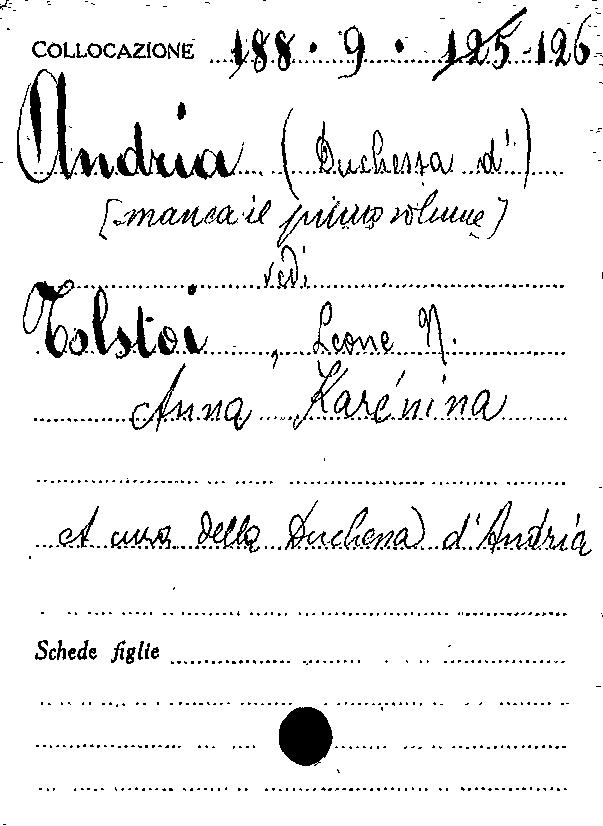 COLLOCAZIONE 188.9.125-126
Andria (Duchessa d')
[manca il primo volume]
vedi
Tolstoi, Leone N.
Anna Karénina
A cura della Duchessa d'Andria
Schede figlie